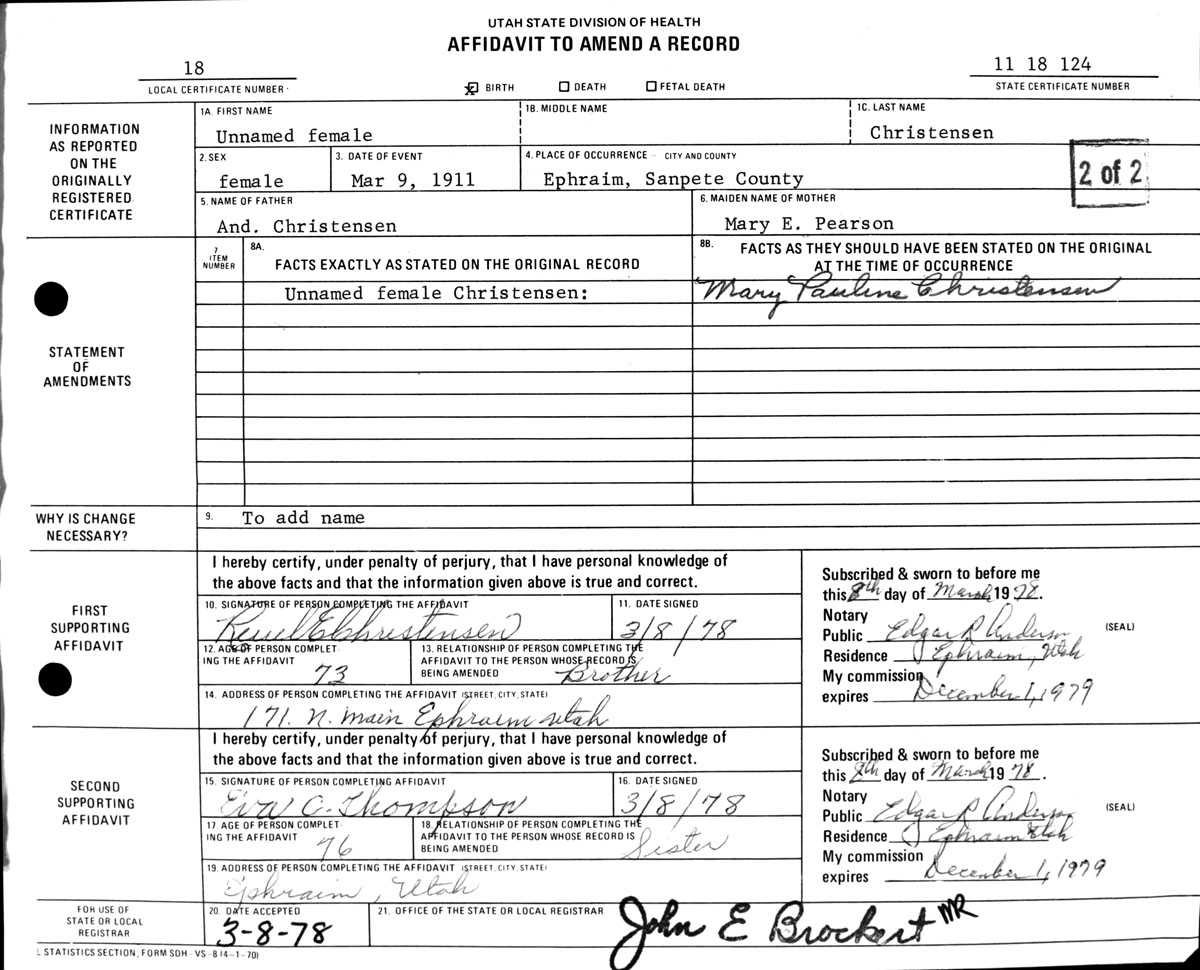 UTAH STATE DIVISION OF HEALTH
AFFIDAVIT TO AMEND A RECORD
18
LOCAL CERTIFICATE NUMBER
BIRTH DEATH FETAL DEATH
11 18 124
STATE CERTIFICATE NUMBER
INFORMATION AS REPORTED ON THE ORIGINALLY REGISTERED CERTIFICATE
1A. FIRST NAME 1B. MIDDLE NAME 1C. LAST NAME
Unnamed female Christensen
2. SEX 3. DATE OF EVENT 4. PLACE OF OCCURRENCE CITY AND COUNTY
female Mar 9, 1911 Ephraim, Sanpete County
2 of 2
5. NAME OF FATHER 6. MAIDEN NAME OF MOTHER
And. Christensen Mary E. Pearson
STATEMENT OF AMENDMENTS
7 ITEM NUMBER
8A. FACTS EXACTLY AS STATED ON THE ORIGINAL RECORD
8B. FACTS AS THEY SHOULD HAVE BEEN STATED ON THE ORIGINAL
AT THE TIME OF OCCURRENCE
Unnamed female Christensen: Mary Pauline Christensen
WHY IS CHANGE NECESSARY?
9. To add name
FIRST SUPPORTING AFFIDAVIT
I hereby certify, under penalty of perjury, that I have personal knowledge of
the above facts and that the information given above is true and correct.
10. SIGNATURE OF PERSON COMPLETING THE AFFIDAVIT 11. DATE SIGNED
Reuel E Christensen 3/8/78
12. AGE OF PERSON COMPLET-
ING THE AFFIDAVIT 73
13. RELATIONSHIP OF PERSON COMPLETING THE
AFFIDAVIT TO THE PERSON WHOSE RECORD IS
BEING AMENDED Brother
14. ADDRESS OF PERSON COMPLETING THE AFFIDAVIT (STREET, CITY, STATE)
171. N. Main Ephraim utah
Subscribed & sworn to before me
this 8th day of March 1978.
Notary
Public Edgar R Anderson (SEAL)
Residence Ephraim, Utah
My commission
expires December 1, 1979
SECOND SUPPORTING AFFIDAVIT
I hereby certify, under penalty of perjury, that I have personal knowledge of
the above facts and that the information given above is true and correct.
15. SIGNATURE OF PERSON COMPLETING AFFIDAVIT 16. DATE SIGNED
Eva C. Thompson 3/8/78
17. AGE OF PERSON COMPLET-
ING THE AFFIDAVIT 76
18. RELATIONSHIP OF PERSON COMPLETING THE
AFFIDAVIT TO THE PERSON WHOSE RECORD IS
BEING AMENDED Sister
19. ADDRESS OF PERSON COMPLETING THE AFFIDAVIT (STREET, CITY, STATE)
Ephraim, Utah
Subscribed & sworn to before me
this 8th day of March 1978.
Notary
Public Edgar R Anderson (SEAL)
Residence Ephraim Utah
My commission
expires December 1, 1979
FOR USE OF STATE OR LOCAL REGISTRAR
20. DATE ACCEPTED 21. OFFICE OF THE STATE OR LOCAL REGISTRAR
3-8-78 John E Brockert MR
L STATISTICS SECTION, FORM SDH-VS-8 (4-1-70)